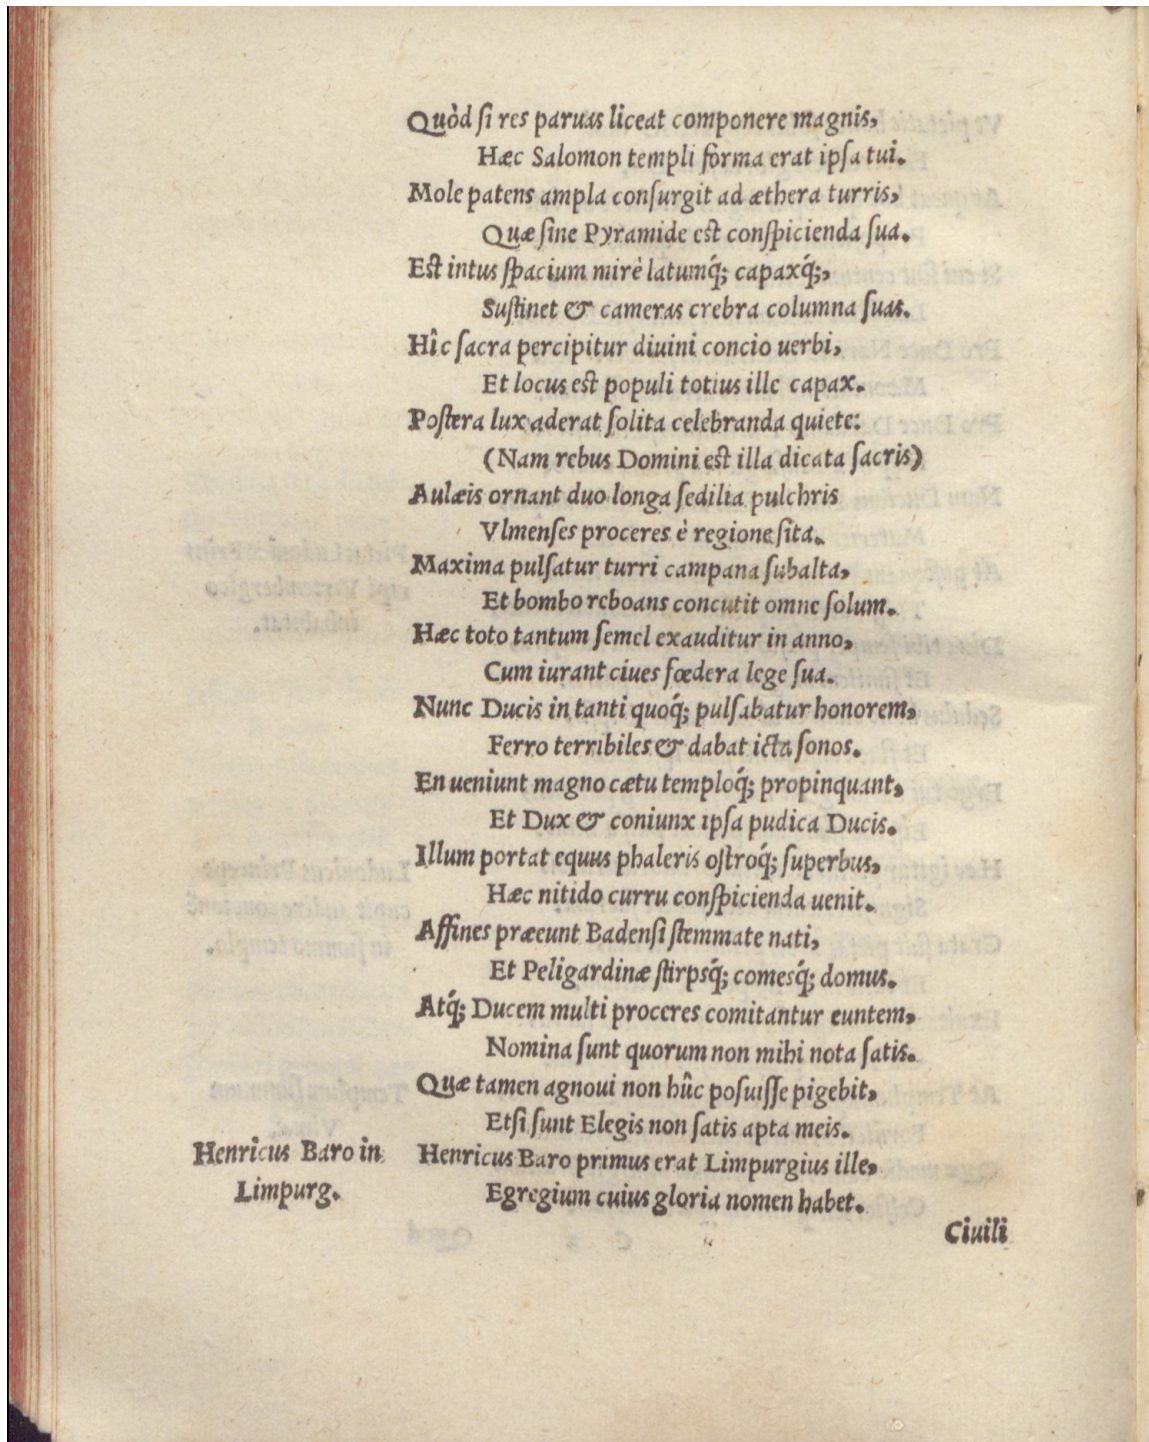 Quòd ſi res paruas liceat componere magnis,
Hæc Salomon templi forma erat ipſa tui.
Mole patens ampla conſurgit ad æthera turris,
Quæ ſine Pyramide est conſpicienda ſua.
Est intus ſpacium mirè latumq́; capaxq́;,
Suſtinet & cameras crebra columna ſuas.
Hîc ſacra percipitur diuini concio uerbi,
Et locus est populi totius ille capax.
Poſtera lux aderat ſolita celebranda quiete:
(Nam rebus Domini est illa dicata ſacris)
Aulæis ornant duo longa ſedilia pulchris
Vlmenſes proceres è regione ſita.
Maxima pulſatur turri campana ſubalta,
Et bombo reboans concutit omne ſolum.
Hæc toto tantum ſemel exauditur in anno,
Cum iurant ciues fœdera lege ſua.
Nunc Ducis in tanti quoq́; pulſabatur honorem,
Ferro terribiles & dabat icta ſonos.
En ueniunt magno cætu temploq́; propinquant,
Et Dux & coniunx ipſa pudica Ducis.
Illum portat equus phaleris oſtroq́; ſuperbus,
Hæc nitido curru conſpicienda uenit.
Affines præeunt Badenſi ſtemmate nati,
Et Peligardinæ ſtirpsq́; comesq́; domus.
Atq́; Ducem multi proceres comitantur euntem,
Nomina ſunt quorum non mihi nota ſatis.
Quæ tamen agnoui non hûc poſuiſſe pigebit,
Etſi ſunt Elegis non ſatis apta meis.
Henricus Baro in
Limpurg.
Henricus Baro primus erat Limpurgius ille,
Egregium cuius gloria nomen habet.
Ciuili